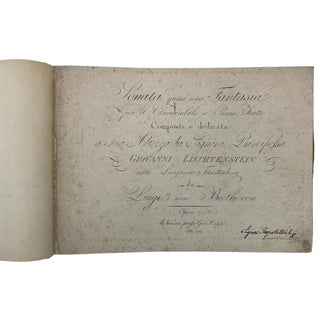 Sonata quasi una Fantasia
per il Clavicembalo o Piano-Forte
Composta, e dedicata
a Sua Altezza la Signora Principessa
GIOVANNI LIECHTENSTEIN
nata Langravio Fürstenberg
da
Luigi van Beethoven
Opera
In Vienna presso Gio. Cappi